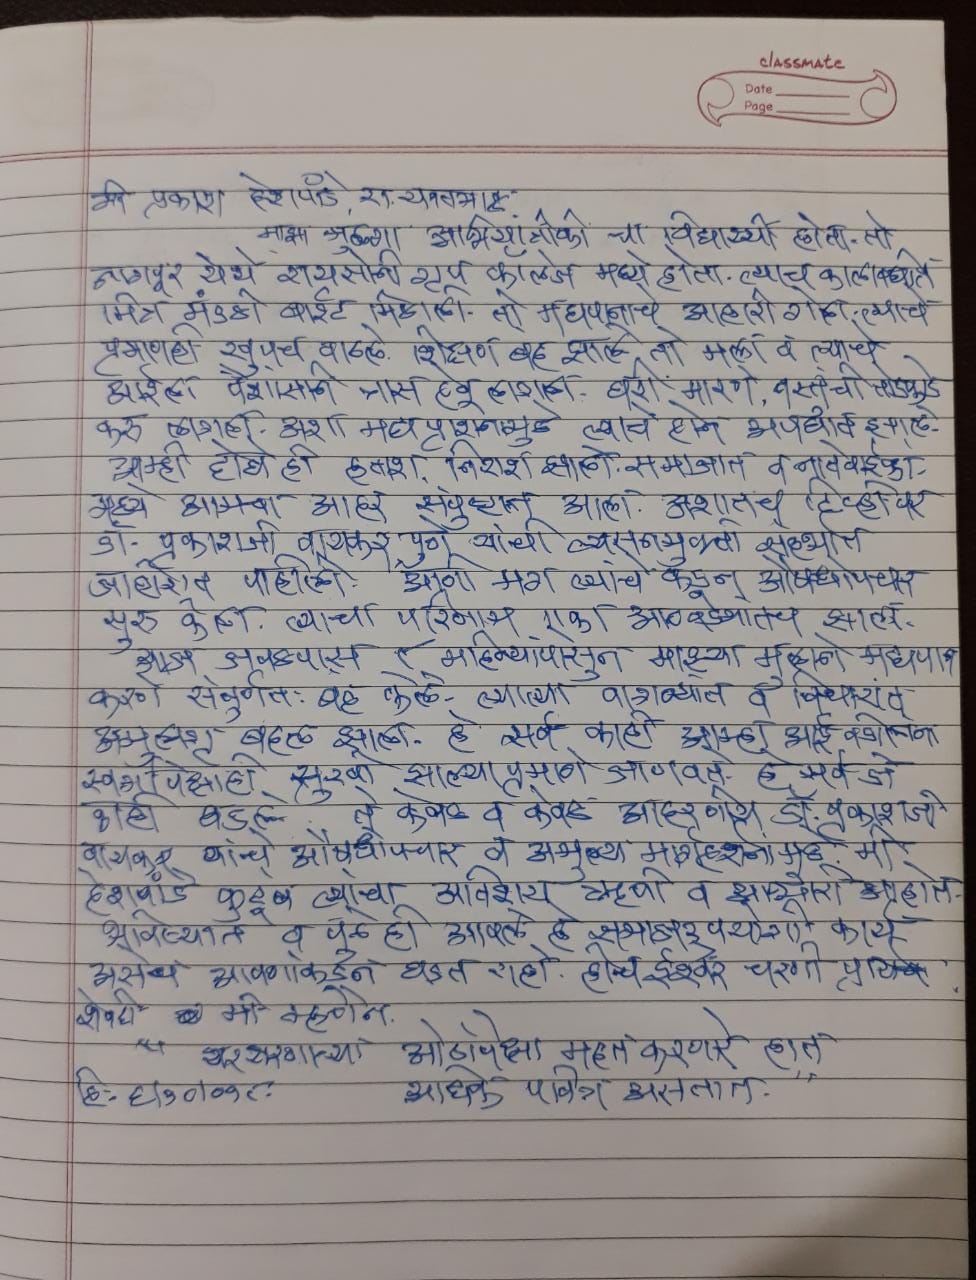 classmate
Date
Page
मी प्रकाश देशपांडे, रा. यवतमाळ.
माझा मुलगा अभियांत्रीकी चा विद्यार्थ्यी होता. तो
नागपूर येथे रायसोनी ग्रुप कॉलेज मध्ये होता. त्याच कालावधीत
मित्र मंडळी वाईट मिळाली. तो मद्यपानाचे आहारी गेला. त्याचे
प्रमाणही खुपच वाढले. शिक्षण बंद झाले तो मला व त्याचे
आईला पैशासाठी त्रास देवू लागला. घरी मारणे, वस्तूंची तोडफोड
करु लागला. अशा मद्य प्राशनामुळे त्याचे दोन अपघात झाले.
आम्ही दोघे ही हताश, निराश झालो. समाजात व नातेवाईका-
मध्ये आमचा आदर संपुष्टात आला. अशातच टिव्हीवर
डॉ. प्रकाशजी पुणे यांची व्यसनमुक्ती संदर्भात
जाहीरात पाहीली. आणी मग त्यांचे कडून औषधोपचार
सुरु केला. त्याचा परिणाम एका आठवड्यातच झाला.
आज जवळपास महिन्यापासुन माझ्या मुलाने मद्यपान
करणे संपुर्णतः बंद केले. त्याच्या वागण्यात व विचारात
अमुलाग्र बदल झाला. हे सर्व काही आम्हा आई वडीलांना
स्वर्गापेक्षाही सुखी झाल्या प्रमाणे जाणवते. हे सर्व जे
काही घडले ते केवळ व केवळ आदरणीय डॉ. प्रकाशजी
यांचे औषधोपचार व अमुल्य मार्गदर्शनामुळे. मी
देशपांडे कुटूंब त्यांचा अतिशय ऋणी व आभारी आहोत.
भविष्यात व पुढे ही आपले हे समाजउपयोगी कार्य
असेच आपणाकडून घडत राहो. हीच ईश्वर चरणी प्रार्थना
शेवटी मी म्हणेन.
" ओठांपेक्षा मदत करणारे हात
दि. अधिक पवित्र असतात.